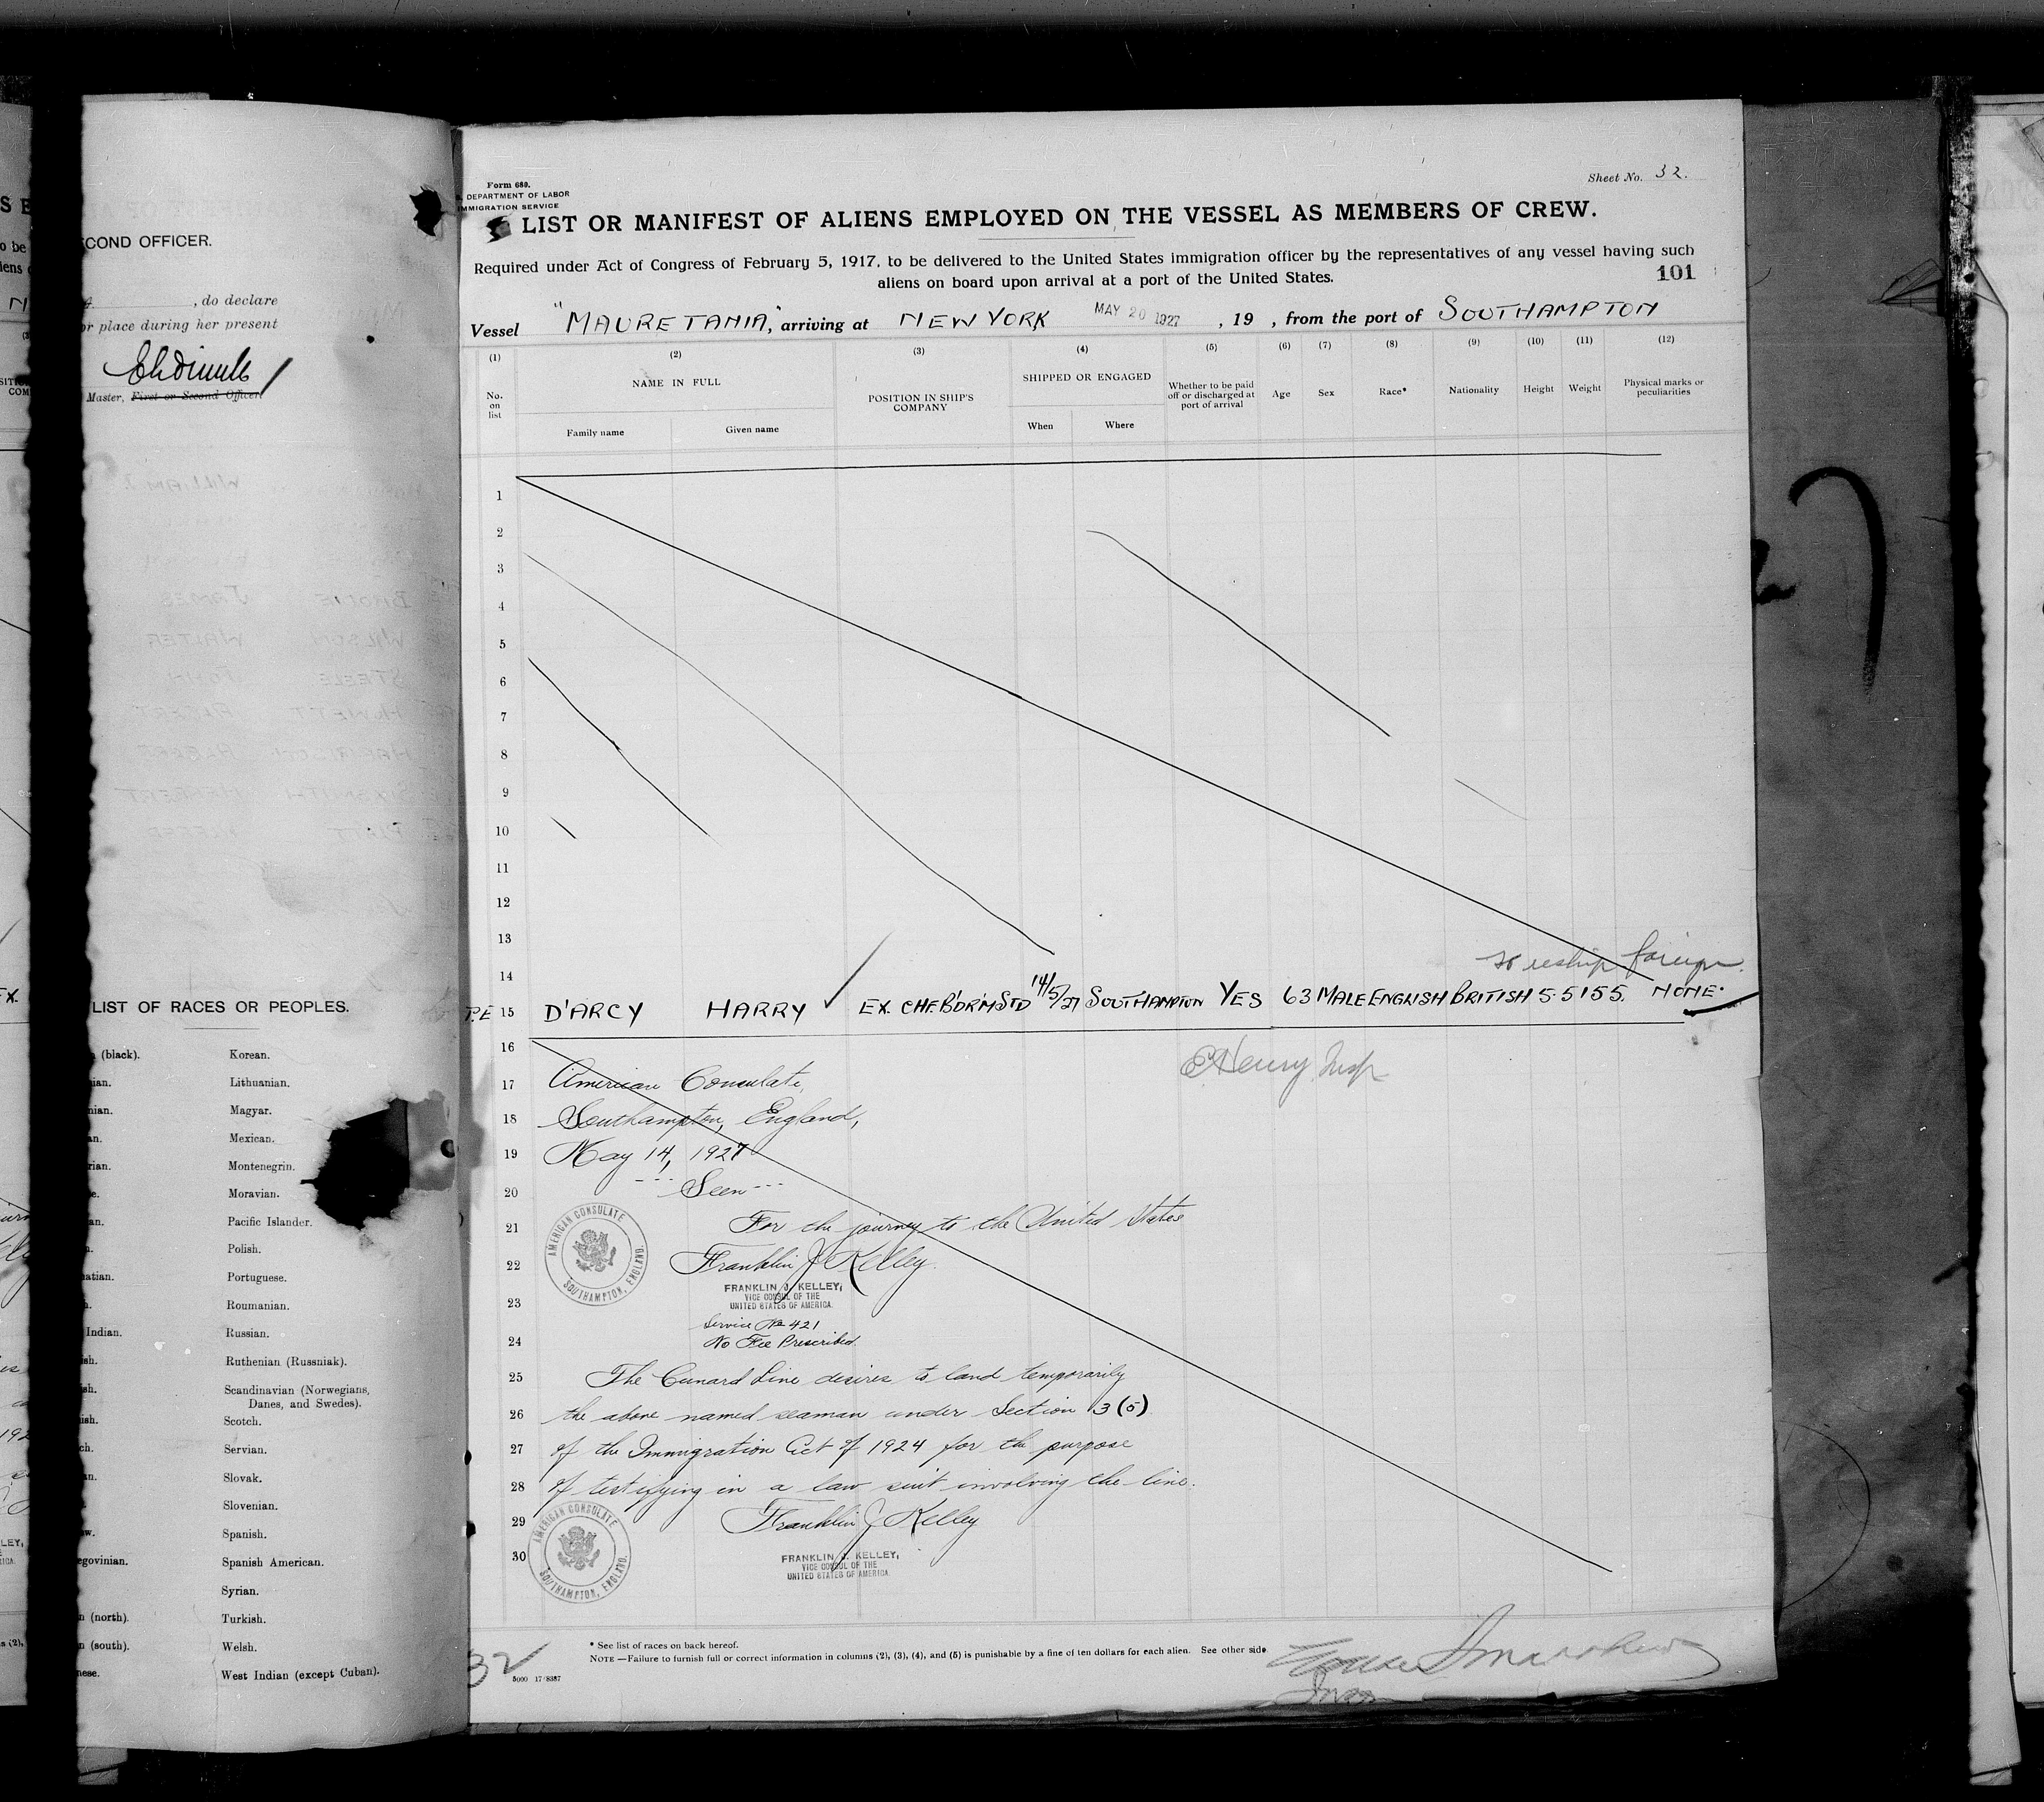 COND OFFICER.
, do declare
or place during her present
Master, First or Second Officer
LIST OF RACES OR PEOPLES.
(black). Korean.
Lithuanian.
Magyar.
Mexican.
Montenegrin.
Moravian.
Pacific Islander.
Polish.
Portuguese.
Roumanian.
Indian. Russian.
Ruthenian (Russniak).
Scandinavian (Norwegians,
Danes, and Swedes).
Scotch.
Servian.
Slovak.
Slovenian.
Spanish.
Spanish American.
Syrian.
(north). Turkish.
(south). Welsh.
West Indian (except Cuban).
Form 680.
DEPARTMENT OF LABOR
IMMIGRATION SERVICE
Sheet No. 32.
LIST OR MANIFEST OF ALIENS EMPLOYED ON THE VESSEL AS MEMBERS OF CREW.
Required under Act of Congress of February 5, 1917, to be delivered to the United States immigration officer by the representatives of any vessel having such
aliens on board upon arrival at a port of the United States.
101
Vessel "MAURETANIA", arriving at NEW YORK MAY 20 1927, 19 , from the port of SOUTHAMPTON
(1) (2) (3) (4) (5) (6) (7) (8) (9) (10) (11) (12)
No. on list
NAME IN FULL
Family name Given name
POSITION IN SHIP'S COMPANY
SHIPPED OR ENGAGED
When Where
Whether to be paid off or discharged at port of arrival
Age Sex Race* Nationality Height Weight
Physical marks or peculiarities
1
2
3
4
5
6
7
8
9
10
11
12
13
14
reship foreign.
P.E 15 D'ARCY HARRY EX. CHF. B'DRM STD 14/5/27 SOUTHAMPTON YES 63 MALE ENGLISH BRITISH 5.5 155. NONE.
16
E Henry Insp
17 American Consulate,
18 Southampton, England,
19 May 14, 1927
20 --- Seen ---
21 For the journey to the United States
22 Franklin J Kelley.
AMERICAN CONSULATE
SOUTHAMPTON, ENGLAND.
FRANKLIN J. KELLEY,
23 VICE CONSUL OF THE
UNITED STATES OF AMERICA.
Service No 421
24 No Fee Prescribed.
25 The Cunard Line desires to land temporarily
26 the above named seaman under Section 3 (5)
27 of the Immigration Act of 1924 for the purpose
28 of testifying in a law suit involving the line.
29 Franklin J Kelley
AMERICAN CONSULATE
SOUTHAMPTON, ENGLAND.
30 FRANKLIN J. KELLEY,
VICE CONSUL OF THE
UNITED STATES OF AMERICA.
* See list of races on back hereof.
NOTE—Failure to furnish full or correct information in columns (2), (3), (4), and (5) is punishable by a fine of ten dollars for each alien. See other side.
32
5000 17/8387